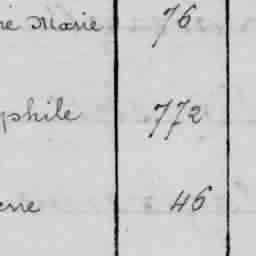 ré Marie 76
phile 772
ene 46